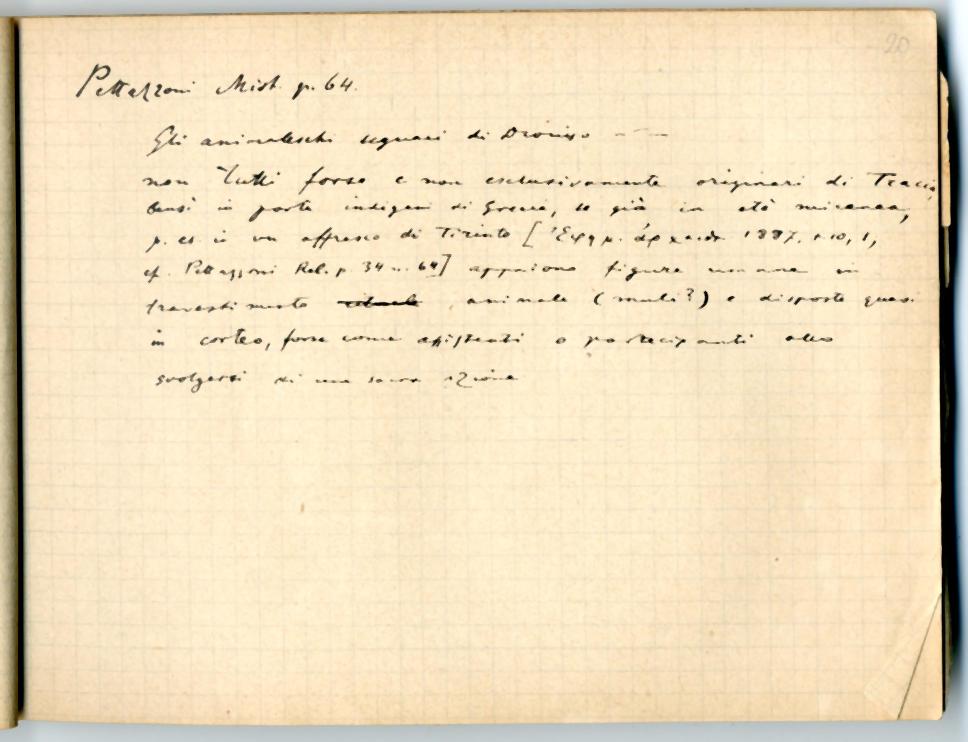 20
Pettazzoni Mist. p. 64.
Gli animaleschi seguaci di Dioniso - - -
non tutti forse e non esclusivamente originari di Tracia,
bensì in parte indigeni di Grecia, se già in età micenea,
p. es. in un affresco di Tirinto [ Ἐφημ. ἀρχαιολ. 1887, t. 10, 1,
cf. Pettazzoni Rel. p. 34 n. 64] appaiono figure umane in
travestimento rituale animale (muli?) e disposte quasi
in corteo, forse come assistenti o partecipanti allo
svolgersi di una sacra azione